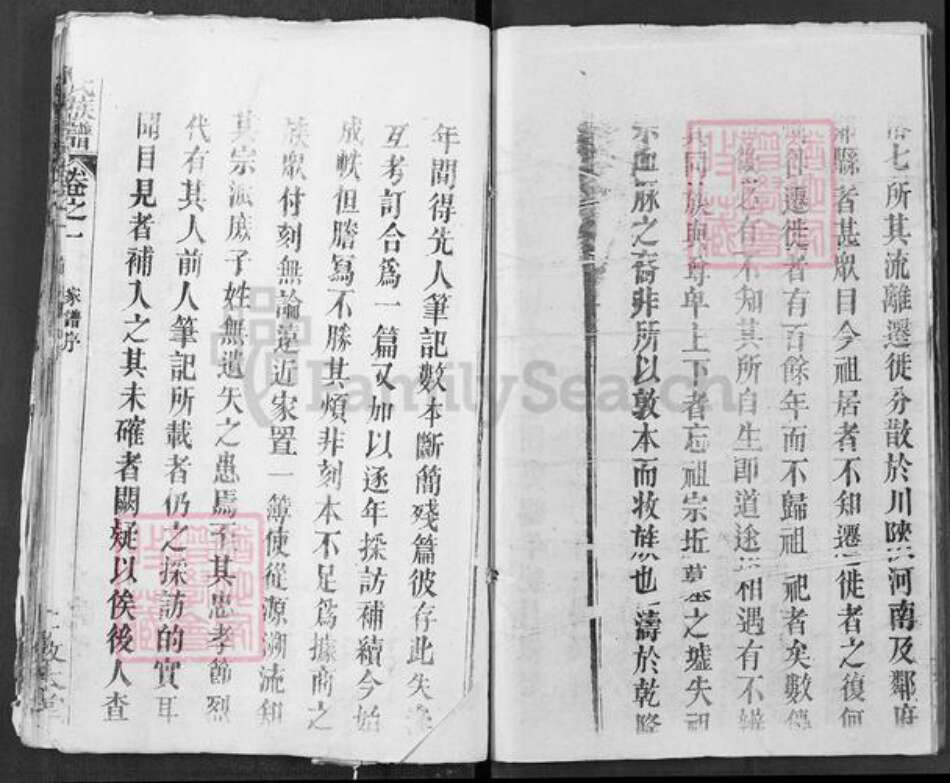 七所其流離遷徙分散於川陝 河南及鄰府
縣者甚眾目今祖居者不知遷徙者之復何
遷徙者有百餘年而不歸祖祀者矣數傳
後 有不知其所自生即道途相遇有不辨
其同族與尊卑上下者忘祖宗坵墓之墟失祖
宗血脉之裔非所以敦本而收族也濤於乾隆
年間得先人筆記數本斷簡殘篇彼存此失
互考訂合爲一篇又加以逐年採訪補續今始
成帙但謄寫不勝其煩非刻本不足爲據商之
族眾付刻無論遠近家置一簿使從源溯流知
其宗派庶子姓無遺失之患焉至其忠孝節烈
代有其人前人筆記所載者仍之採訪的實耳
聞目見者補入之其未確者闕疑以俟後人查
氏族譜 卷之一 家譜序
FamilySearch